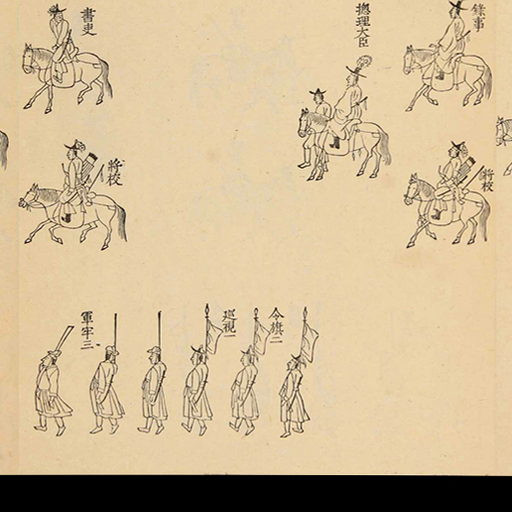 錄事
將校
摠理大臣
令旗二
巡視一
書吏
將校
軍牢三